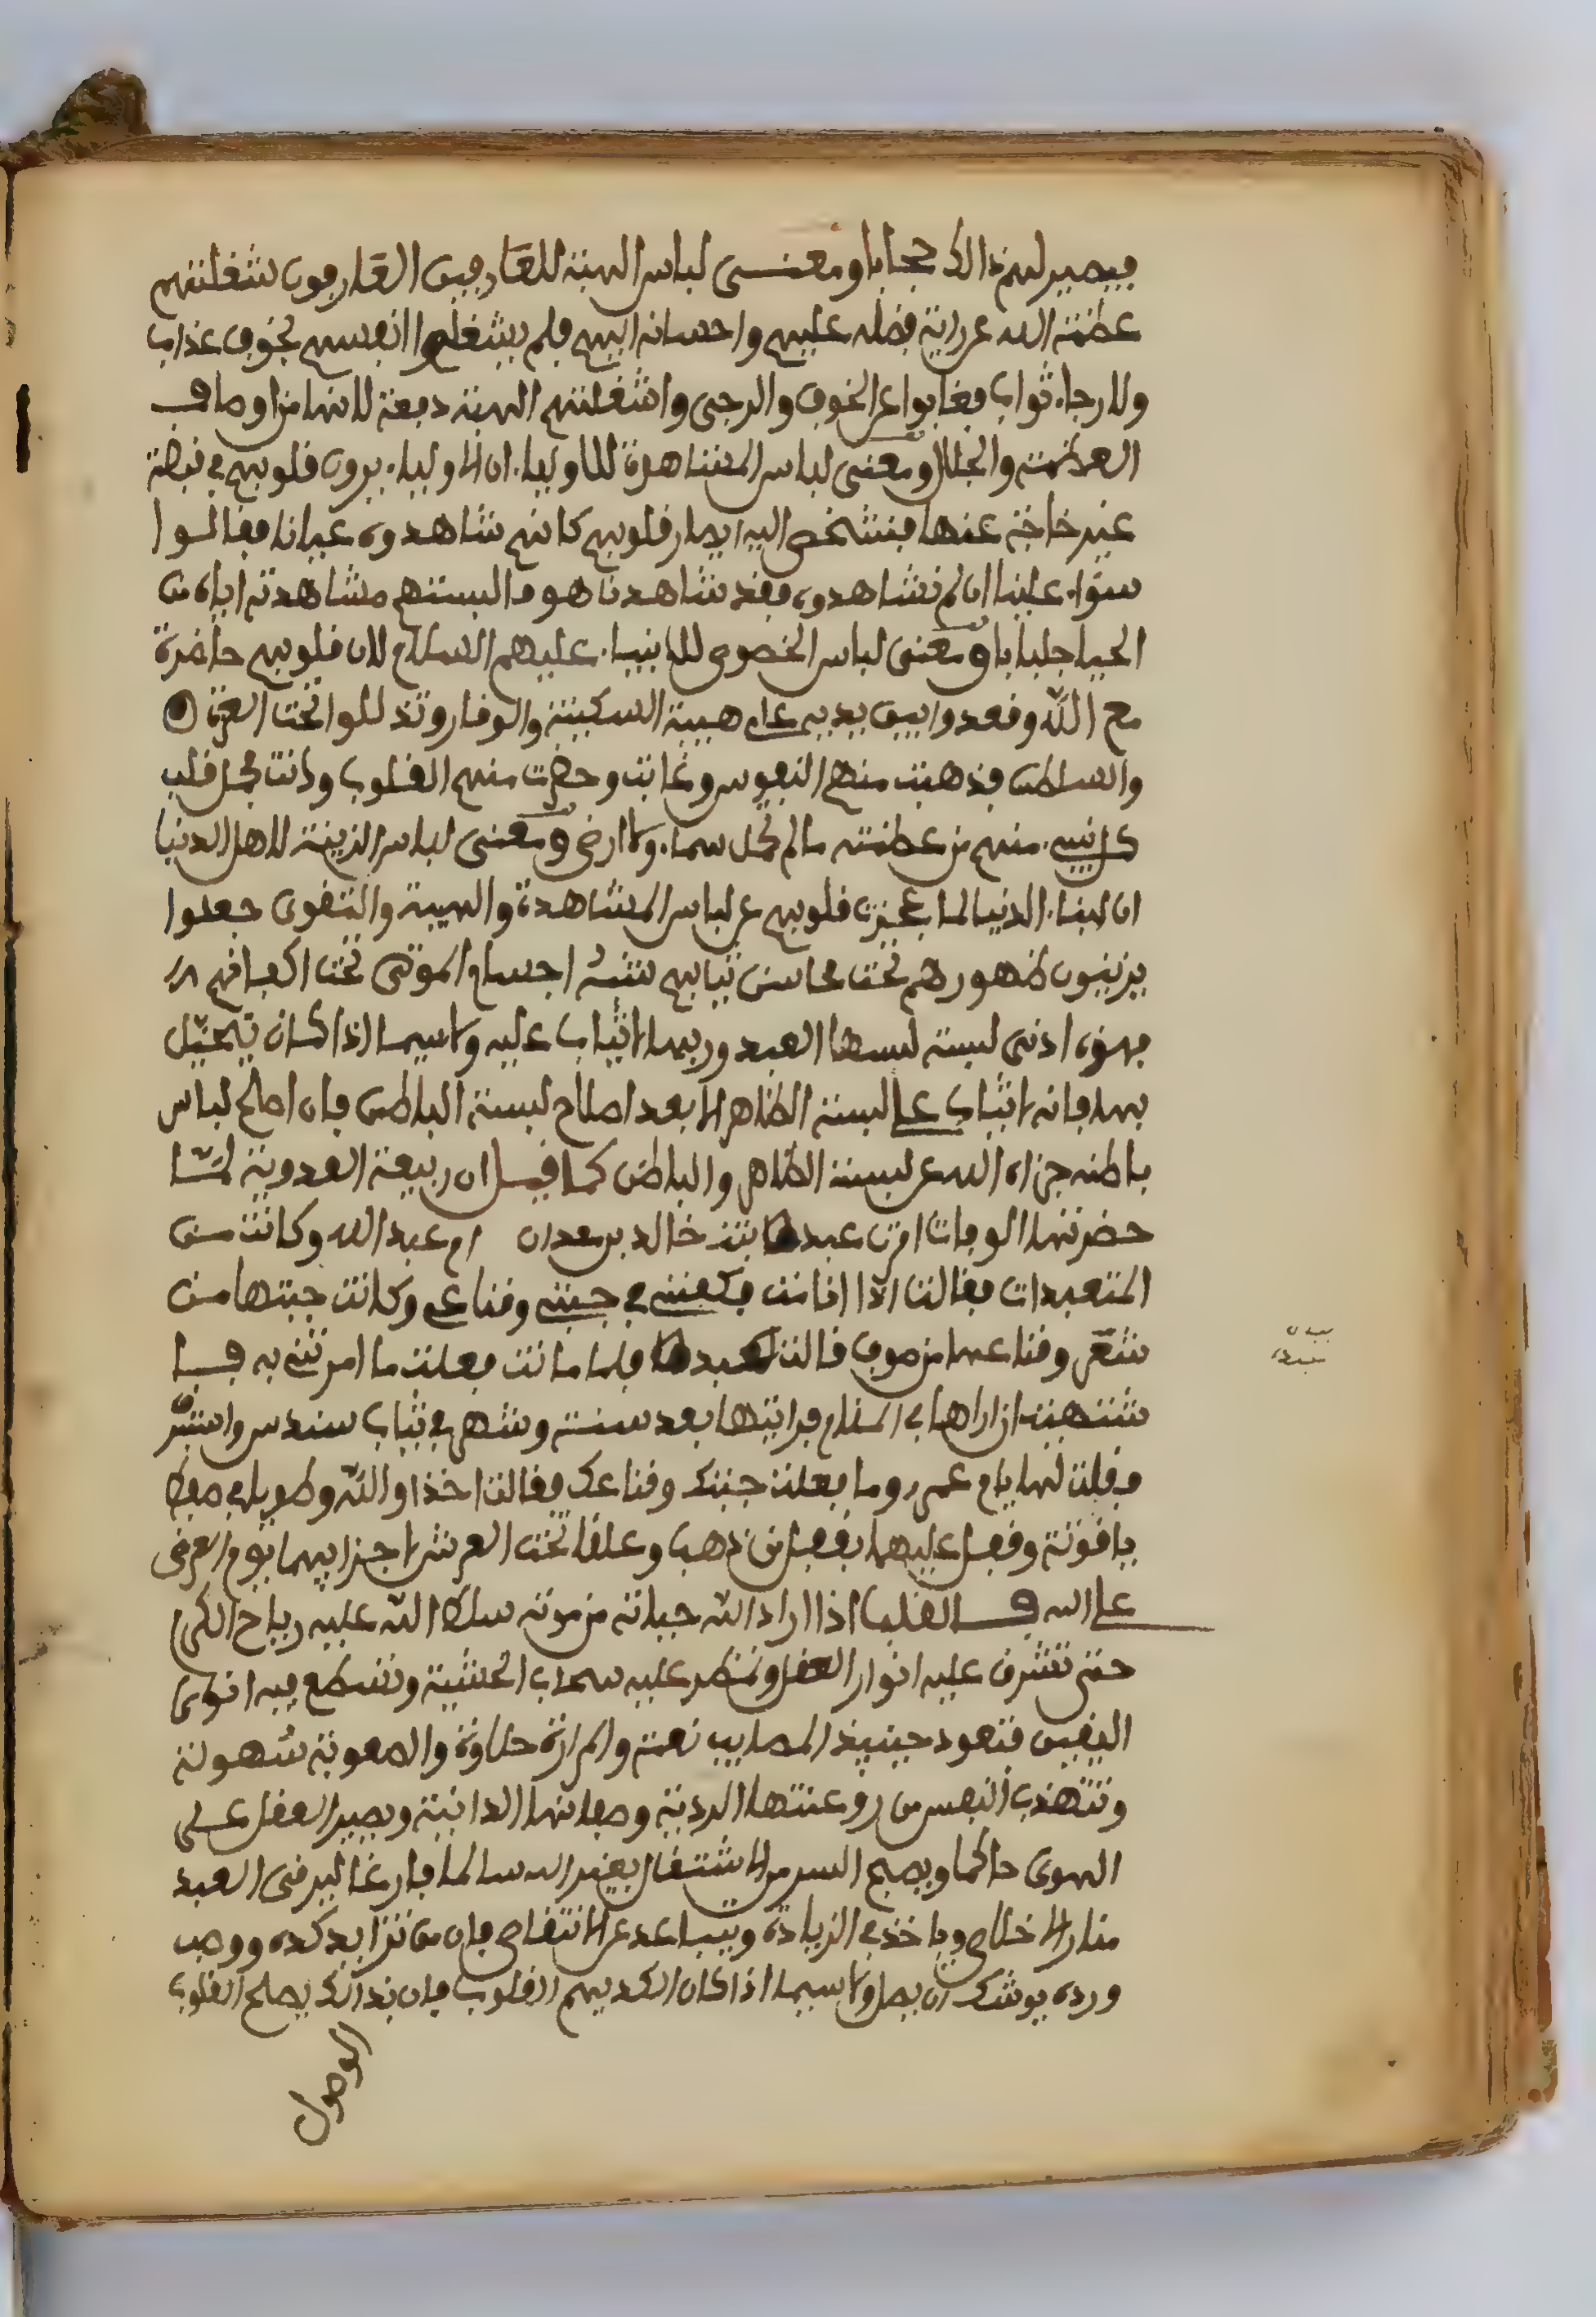 فيصير لهم ذالك حجابا ومعنى لباس الهيبة للعارفين العارفون شغلتهم
عظمة الله عن رؤية فضله عليهم واحسانه اليهم فلم يشغلوا انفسهم بخوف عذاب
ولا رجاء ثواب فغابوا عن الخوف والرجى واشغلتهم الهيبة دفعة لانها من اوصاف
العظمة والجلال ومعنى لباس المشاهدة للاولياء ان الاولياء يرون قلوبهم في قبضة
غير خارجة عنها فتشخص اليه ابصار قلوبهم كانهم شاهدوه عيانا فقالوا
سواء علينا ان لم نشاهدوه فقد شاهدنا هو فالبستهم مشاهدته اياه من
الحيا جلبابا ومعنى لباس الخصوص للانبياء عليهم السلام لان قلوبهم حاضرة
مع الله وقعدوا بين يديه على هيبة السكينة والوقار وتذللوا تحت العزة
والسلطن فذهبت منهم النفوس وغابت وحضرت منهم القلوب وذانت بحمل قلب
كل نبيء منهم من عظمته ما لم تحمل سماء ولا ارض ومعنى لباس الزينة لاهل الدنيا
ان ابناء الدنيا لما عجزت قلوبهم عن لباس المشاهدة والهيبة والتقوى جعلوا
يزينون ظهورهم تحت محاسن ثيابهم شبه اجسام الموتى تحت اكفانهم
فهذه ادنى لبسة لبسها العبد وربما لا يثاب عليه ولا سيما اذا كان يتجمل
بها فانه لا يثاب على لبسة الظاهر الا بعد اصلاح لبسة الباطن فان اصلح لباس
باطنه جزاه الله عن لبسة الظاهر والباطن كما قيل ان ربيعة العدوية لما
حضرتها الوفات امرت عبدها بنت خالد بن معدان ام عبد الله وكانت من
المتعبدات فقالت اذا انا مت فكفنني في جبتي وقناعي وكانت جبتها من
شعر وقناعها من صوف قالت عبدها فلما ماتت فعلت ما امرتني به فيا
شتهيت ان اراها في المنام فرايتها بعد سنة وشهر في ثياب سندس واستبرق
فقلت لها يا ام عمرو ما فعلت جبتك وقناعك فقالت اخذا والله وطويا في صفط
ياقوتة وقفل عليهما بقفل من ذهب وعلقا تحت العرش لاجزا بهما يوم العرض
على الله قال القلب اذا اراد الله حياته من موته سلط الله عليه رياح الكرم
حتى تشرف عليه انوار العقل وتمطر عليه سحاب الخشية وتسطع فيه انوار
اليقين فتعود حينيذ المصايب نعمة والمرارة حلاوة والصعوبة سهولة
وتتهذب النفس من رعونتها الردية وصفاتها الدانية ويصير العقل على
الهوى حاكما ويصبح السر من الاشتغال بغير الله سالما فارغا ليرقى العبد
منار الاخلاص وياخذ في الزيادة ويتباعد عن الانتقاص فان من تزايد كده ووصب
ورده يوشك ان يصل ولا سيما اذا كان الكد بهم القلوب فان بذالك يصلح القلوب
الوصول